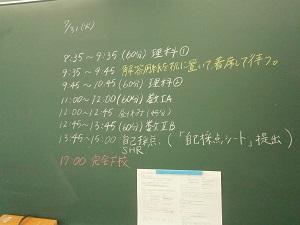 7/31(火)
8:35～9:35(60分)理科①
9:35～9:45 解答用紙を机に置いて着席して待つ。
9:45～10:45(60分)理科②
11:00～12:00(60分)数ⅠA
12:00～12:45
12:45～13:45(60分)数ⅡB
13:45～15:00 自己採点、(「自己採点シート」提出)
SHR
17:00 完全下校